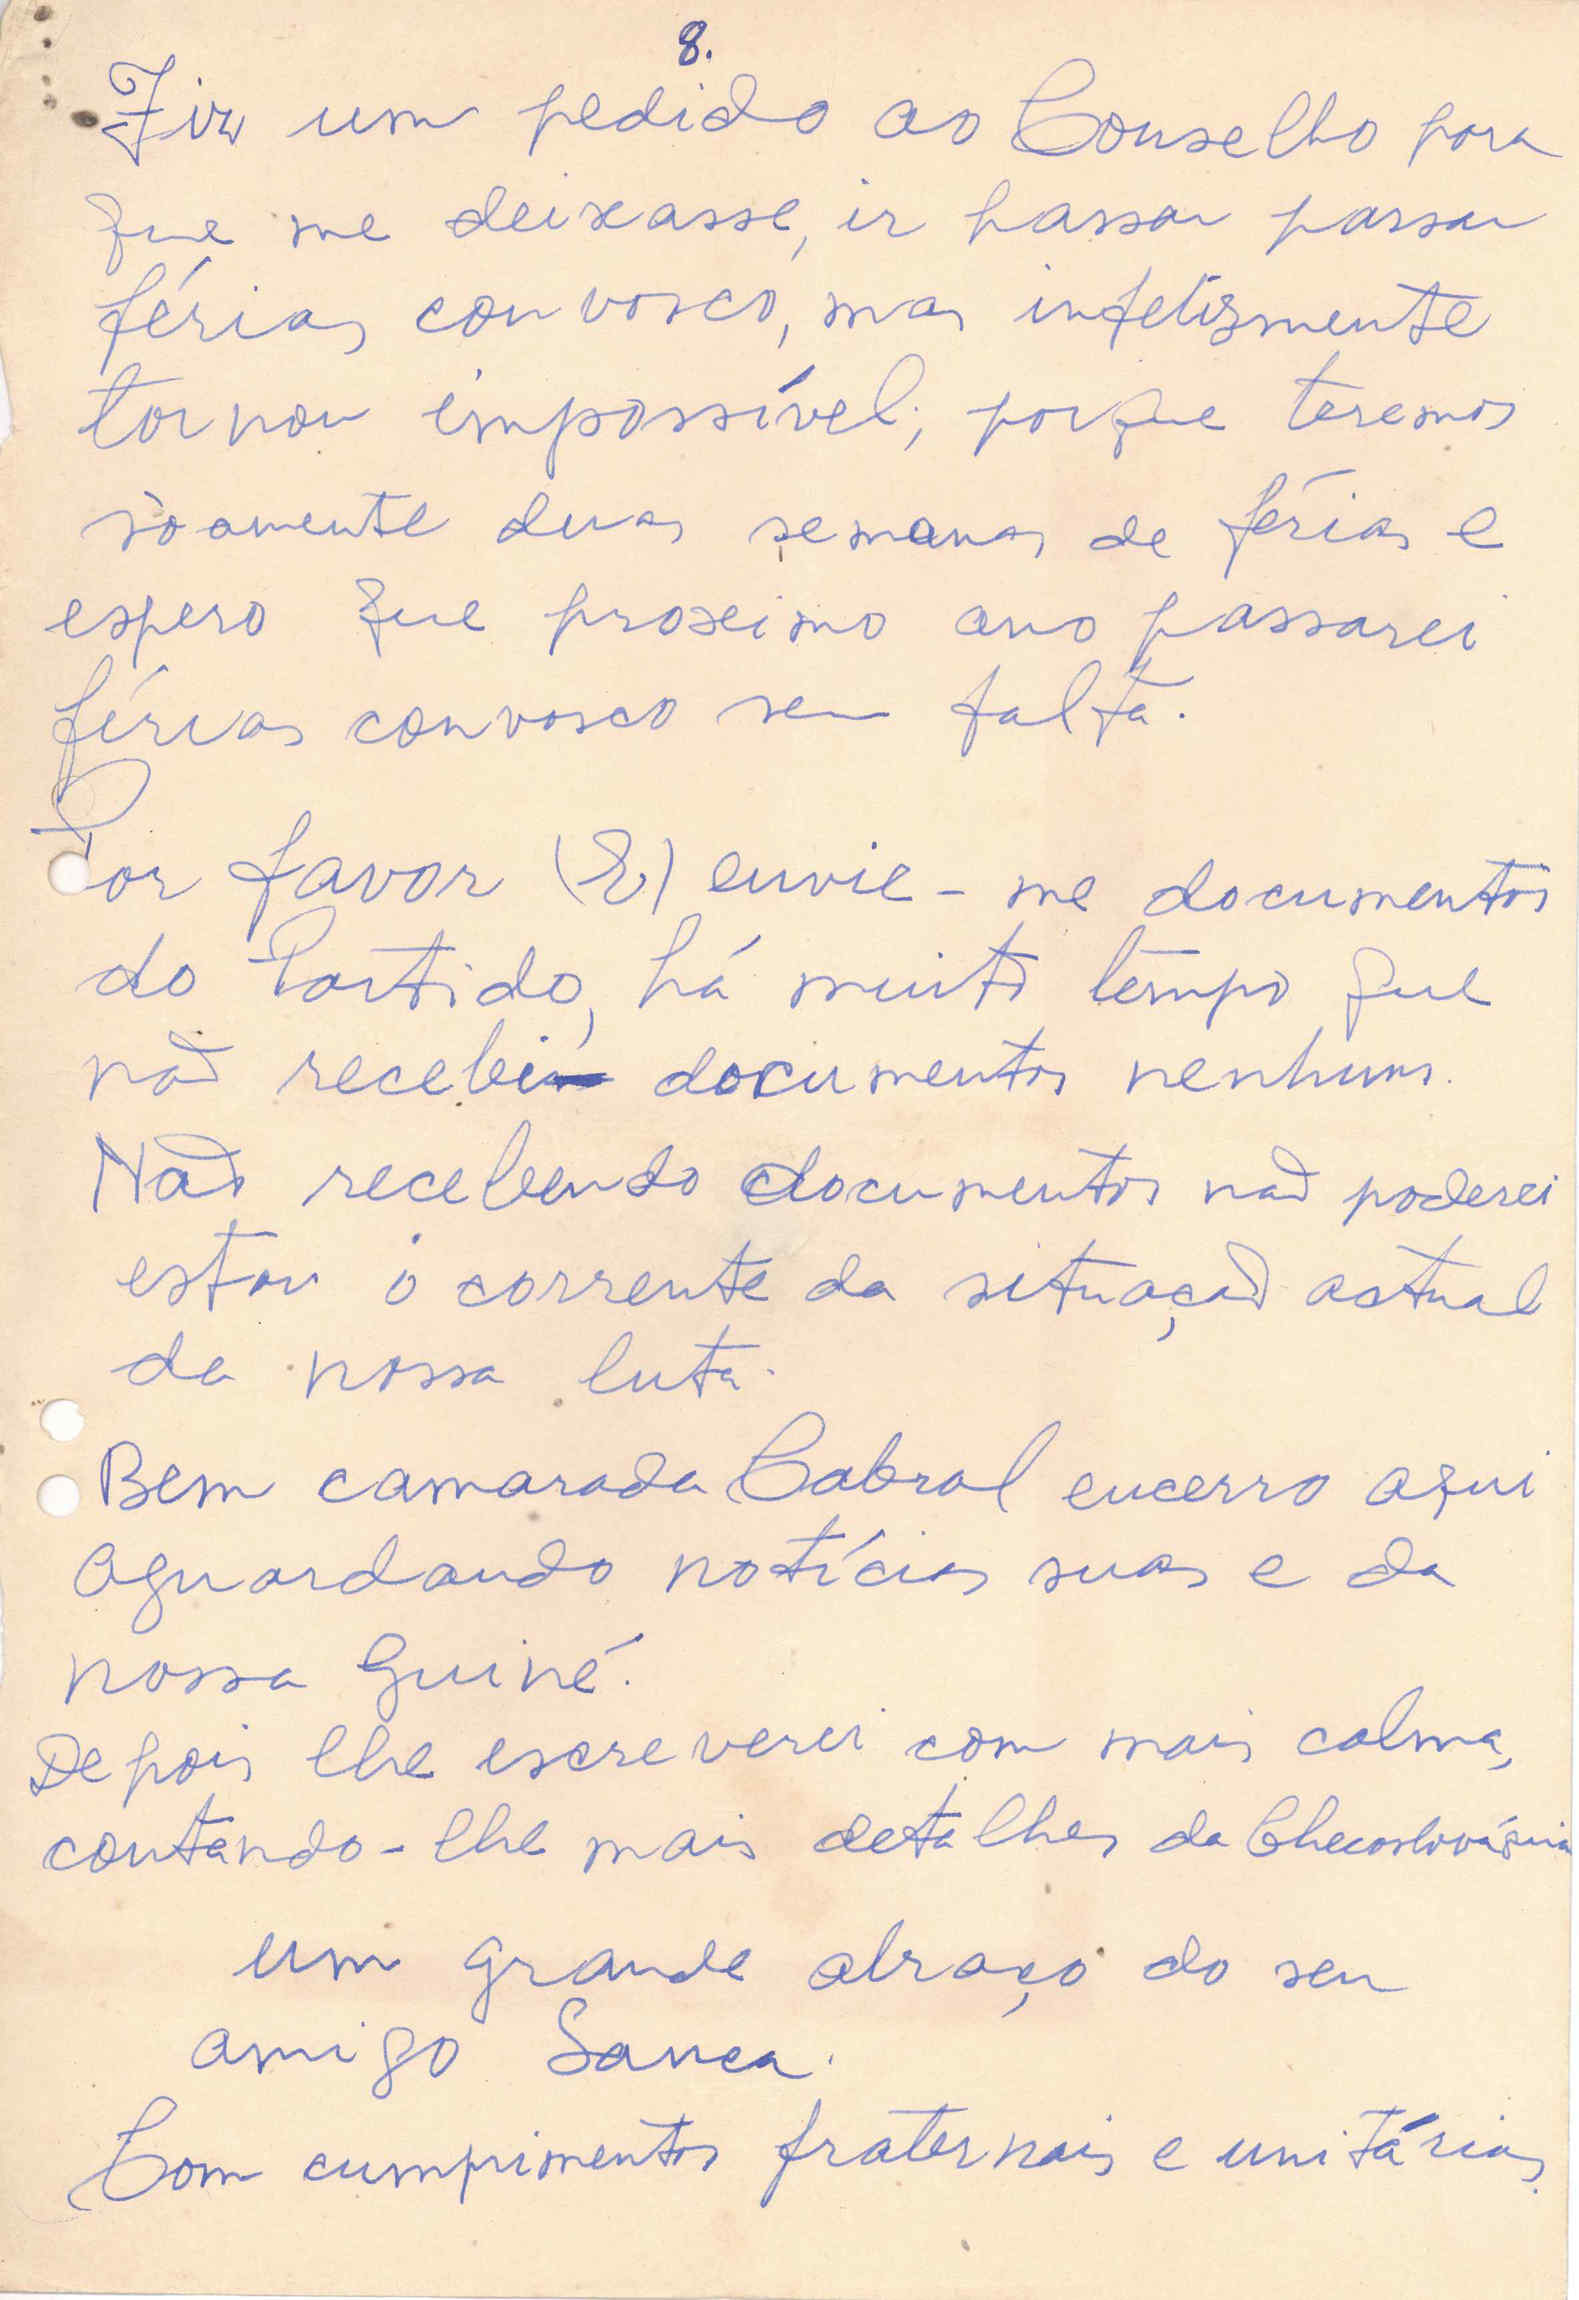 8.
Fiz um pedido ao Conselho para
que me deixasse, ir passar passar
férias convosco, mas infelizmente
tornou impossível, porque teremos
sòamente duas semanas de férias e
espero que proximo ano passarei
férias convosco sem falta.
Por favor (E) envie-me documentos
do Partido, há muito tempo que
não recebi documentos nenhum.
Não recebendo documentos não poderei
estar ó corrente da situação actual
da nossa luta.
Bem camarada Cabral encerro aqui
aguardando notícias suas e da
nossa Guiné.
Depois lhe escreverei com mais calma,
contando-lhe mais detalhes da Checoslováquia
um grande abraço do seu
amigo Sanca.
Com cumprimentos fraternais e unitárias.